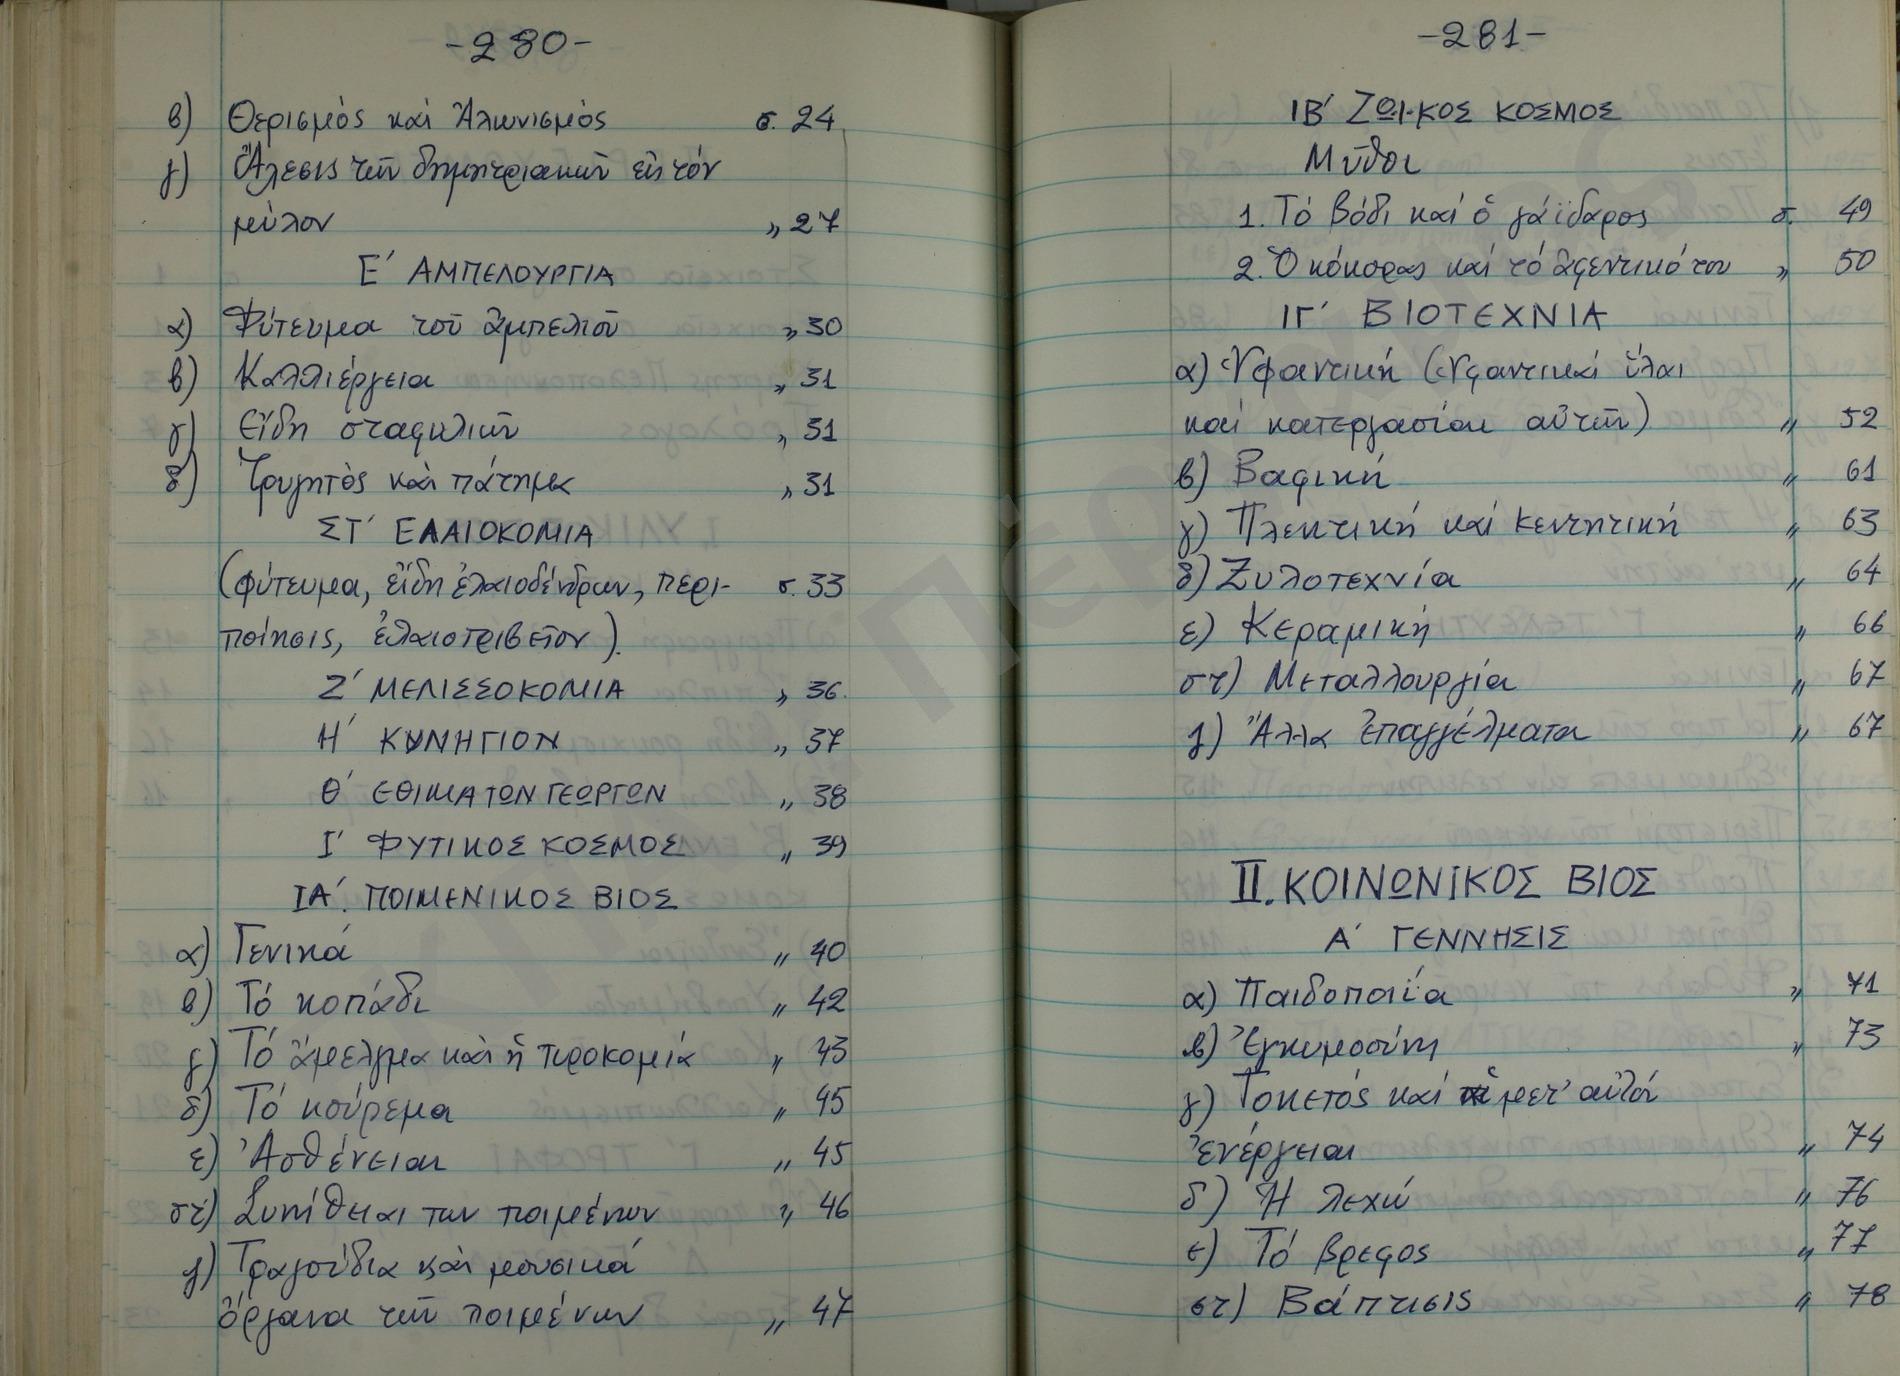 -280-
β) Θερισμὸς καὶ Ἁλωνισμὸς σ. 24
γ) Ἄλεσις τῶν δημητριακῶν εἰς τόν
μύλον „ 27
Ε΄ ΑΜΠΕΛΟΥΡΓΙΑ
α) Φύτευμα τοῦ ἀμπελιοῦ „ 30
β) Καλλιέργεια „ 31
γ) Εἴδη σταφυλιῶν „ 31
δ) Τρυγητὸς καὶ πάτημα „ 31
ΣΤ΄ ΕΛΑΙΟΚΟΜΙΑ
(φύτευμα, εἴδη ἐλαιοδένδρων, περι- σ. 33
ποίησις, ἐλαιοτριβεῖον).
Ζ΄ ΜΕΛΙΣΣΟΚΟΜΙΑ „ 36.
Η΄ ΚΥΝΗΓΙΟΝ „ 37
Θ΄ ΕΘΙΜΑ ΤΩΝ ΓΕΩΡΓΩΝ „ 38
Ι΄ ΦΥΤΙΚΟΣ ΚΟΣΜΟΣ „ 39
ΙΑ΄. ΠΟΙΜΕΝΙΚΟΣ ΒΙΟΣ
α) Γενικά „ 40
β) Τό κοπάδι „ 42
γ) Τό ἄμελγμα καὶ ἡ τυροκομία „ 43
δ) Τό κούρεμα „ 45
ε) Ἀσθένειαι „ 45
στ) Συνήθειαι των ποιμένων „ 46
ζ) Τραγούδια καὶ μουσικά
ὄργανα τῶν ποιμένων „ 47
-281-
ΙΒ΄ ΖΩΙΚΟΣ ΚΟΣΜΟΣ
Μῦθοι
1. Τό βόδι καί ὁ γάϊδαρος σ. 49
2. Ὁ κόκορας καί τό ἀφεντικό του „ 50
ΙΓ΄ ΒΙΟΤΕΧΝΙΑ
α) Ὑφαντική (Ὑφαντικαί ὕλαι
καί κατεργασίαι αὐτῶν) „ 52
β) Βαφική „ 61
γ) Πλεκτική καί κεντητική „ 63
δ) Ξυλοτεχνία „ 64
ε) Κεραμική „ 66
στ) Μεταλλουργία „ 67
ζ) Ἄλλα ἐπαγγέλματα „ 67
ΙΙ. ΚΟΙΝΩΝΙΚΟΣ ΒΙΟΣ
Α΄ ΓΕΝΝΗΣΙΣ
α) Παιδοποιΐα „ 71
β) Ἐγκυμοσύνη „ 73
γ) Τοκετός καί αἱ μετ' αὐτόν
ἐνέργειαι „ 74
δ) Ἡ λεχώ „ 76
ε) Τό βρεφος „ 77
στ) Βάπτισις „ 78